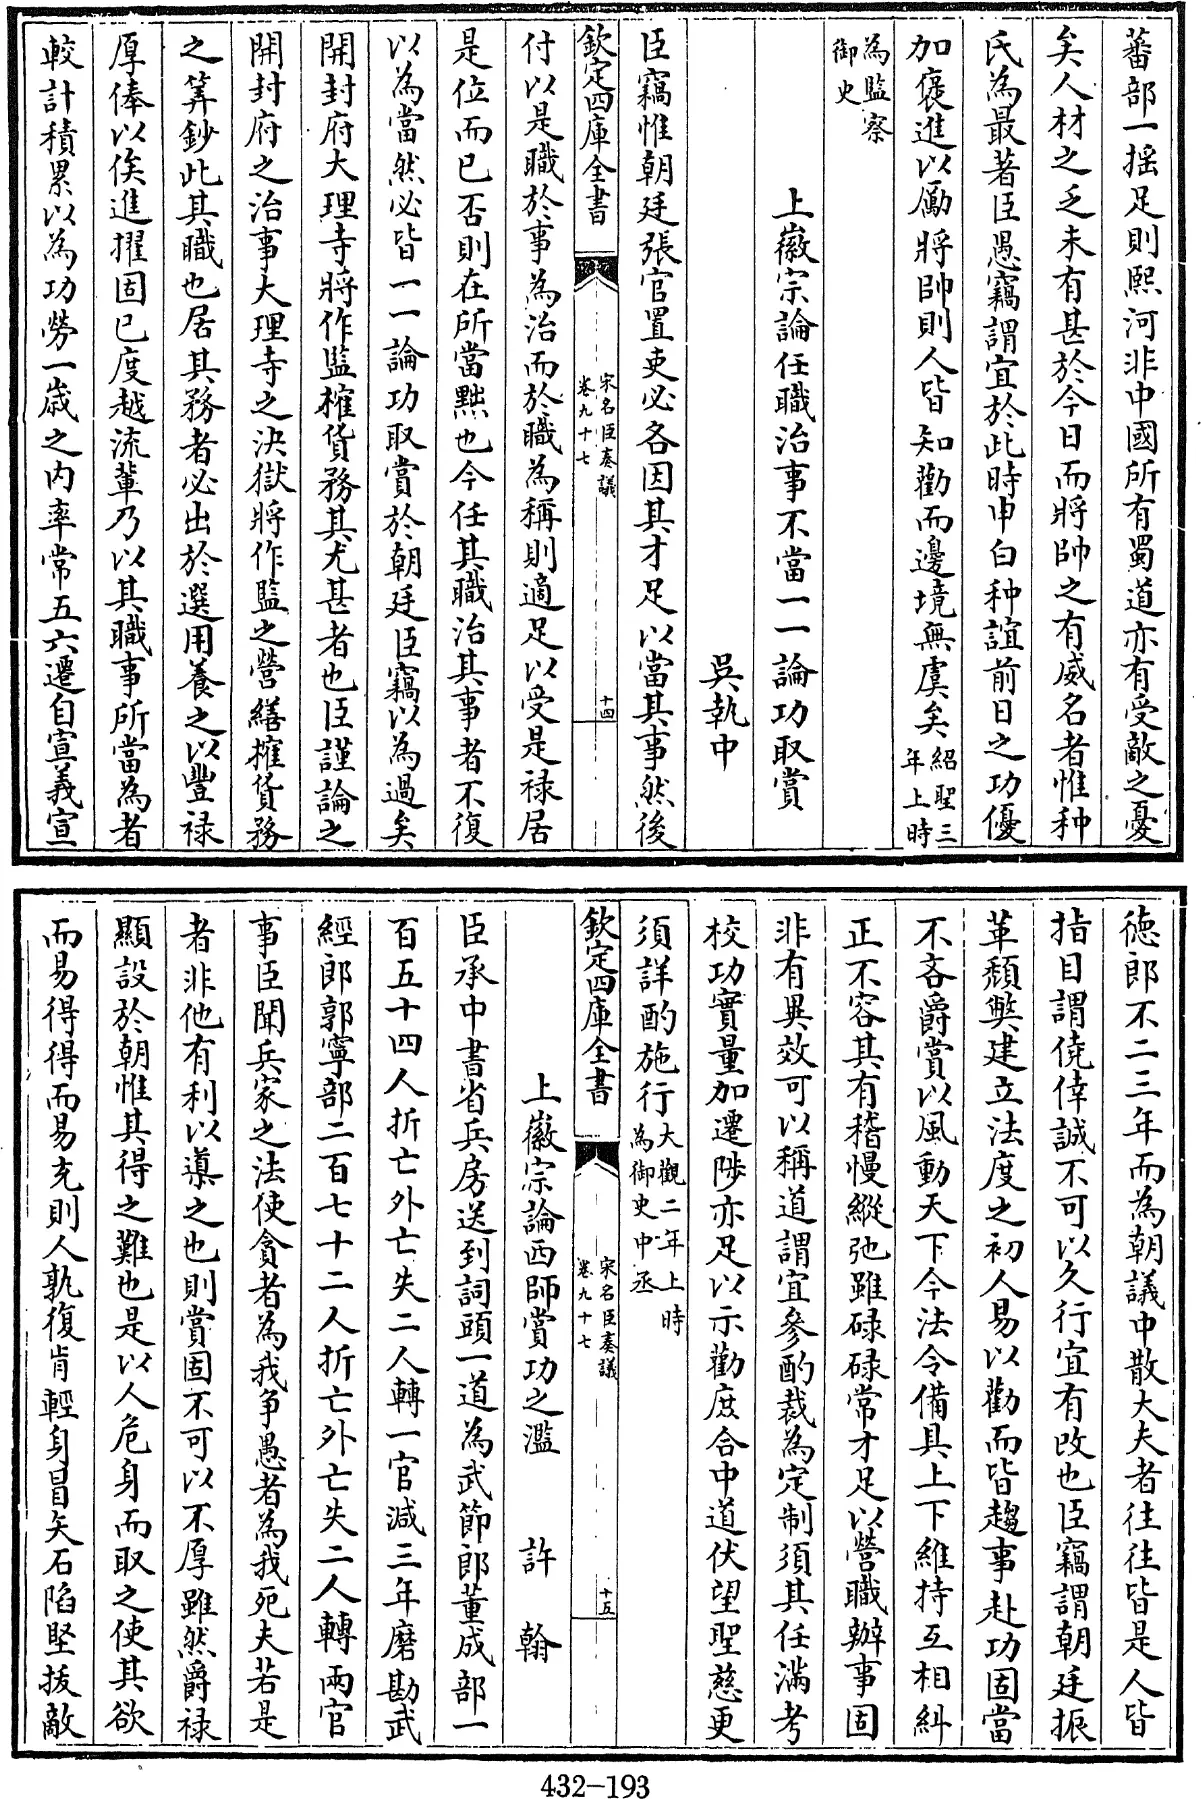 蕃部一揺足則熙河非中國所有蜀道亦有受敵之憂
矣人材之乏未有甚於今日而將帥之有威名者惟种
氏為最著臣愚竊謂宜於此時申白种誼前日之功優
加褒進以勵將帥則人皆知勸而邊境無虞矣紹聖三
年上時
為監察
御史
上徽宗論任職治事不當一一論功取賞
吳執中
臣竊惟朝廷張官置吏必各因其才足以當其事然後
欽定四庫全書
宋名臣奏議
卷九十七
十四
付以是職於事為治而於職為稱則適足以受是禄居
是位而已否則在所當黜也今任其職治其事者不復
以為當然必皆一一論功取賞於朝廷臣竊以為過矣
開封府大理寺將作監榷貨務其尤甚者也臣謹論之
開封府之治事大理寺之決獄將作監之營繕榷貨務
之筭鈔此其職也居其務者必出於選用養之以豐禄
厚俸以俟進擢固已度越流輩乃以其職事所當為者
較計積累以為功勞一嵗之内率常五六遷自宣義宣
德郎不二三年而為朝議中散大夫者往往皆是人皆
指目謂僥倖誠不可以久行宜有改也臣竊謂朝廷振
革頽弊建立法度之初人易以勸而皆趨事赴功固當
不吝爵賞以風動天下今法令備具上下維持互相糾
正不容其有稽慢縱弛雖碌碌常才足以營職辦事固
非有異效可以稱道謂宜參酌裁為定制須其任滿考
校功實量加遷陟亦足以示勸庶合中道伏望聖慈更
須詳酌施行大觀二年上時
為御史中丞
欽定四庫全書
宋名臣奏議
卷九十七
十五
上徽宗論西師賞功之濫　許　翰
臣承中書省兵房送到詞頭一道為武節郎董成部一
百五十四人折亡外亡失二人轉一官減三年磨勘武
經郎郭寧部二百七十二人折亡外亡失二人轉兩官
事臣聞兵家之法使貪者為我爭愚者為我死夫若是
者非他有利以導之也則賞固不可以不厚雖然爵禄
顯設於朝惟其得之難也是以人危身而取之使其欲
而易得得而易充則人孰復肯輕身冒矢石陷堅拔敵
432-193